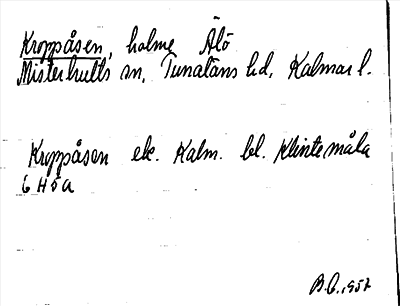 Kroppåsen, holme Älö
Misterhults sn, Tunaläns hd, Kalmar l.
Kroppåsen ek. Kalm. bl. Klintemåla
6 H 5 a
B.C. 1957